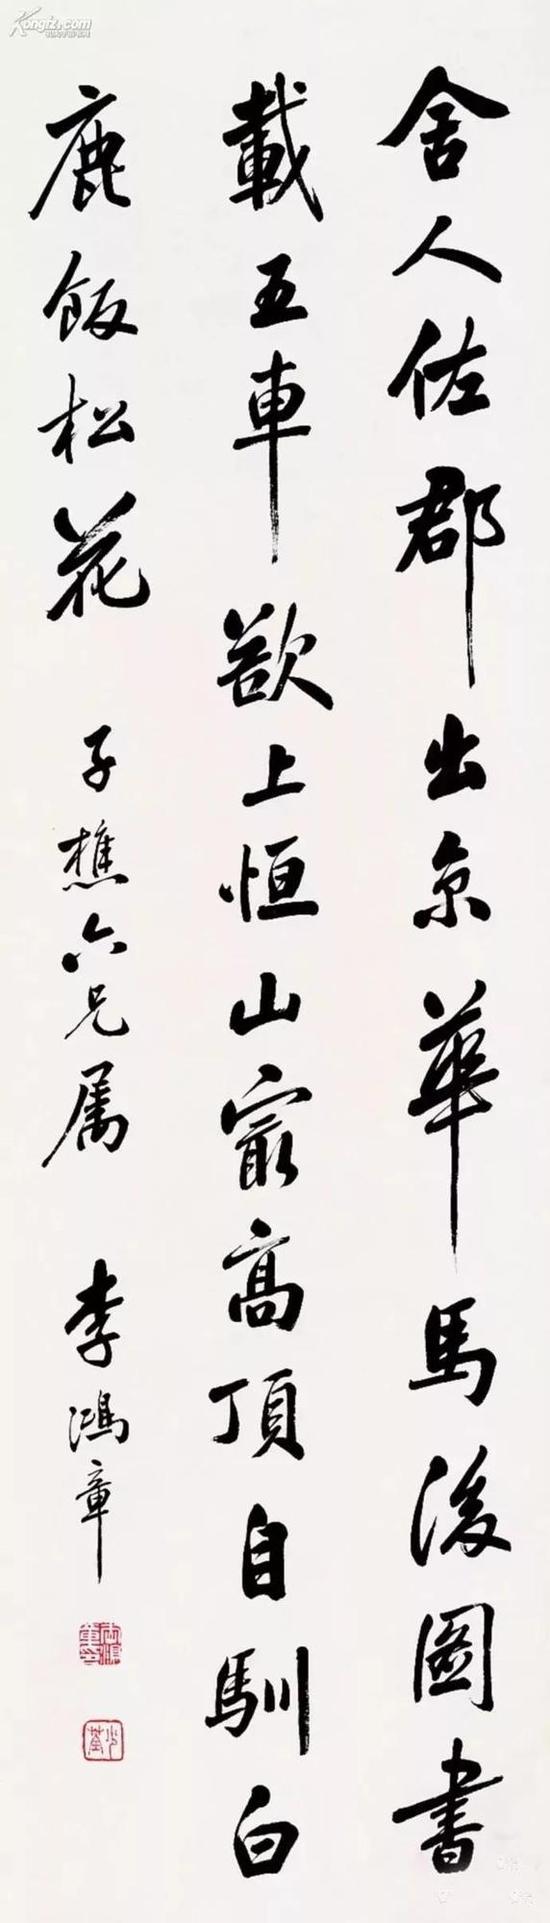 舍人佐郡出京華馬後圖書
載五車欲上恒山最高頂自馴白
鹿飯松花
子樵六兄属
李鴻章
Kongfz.com